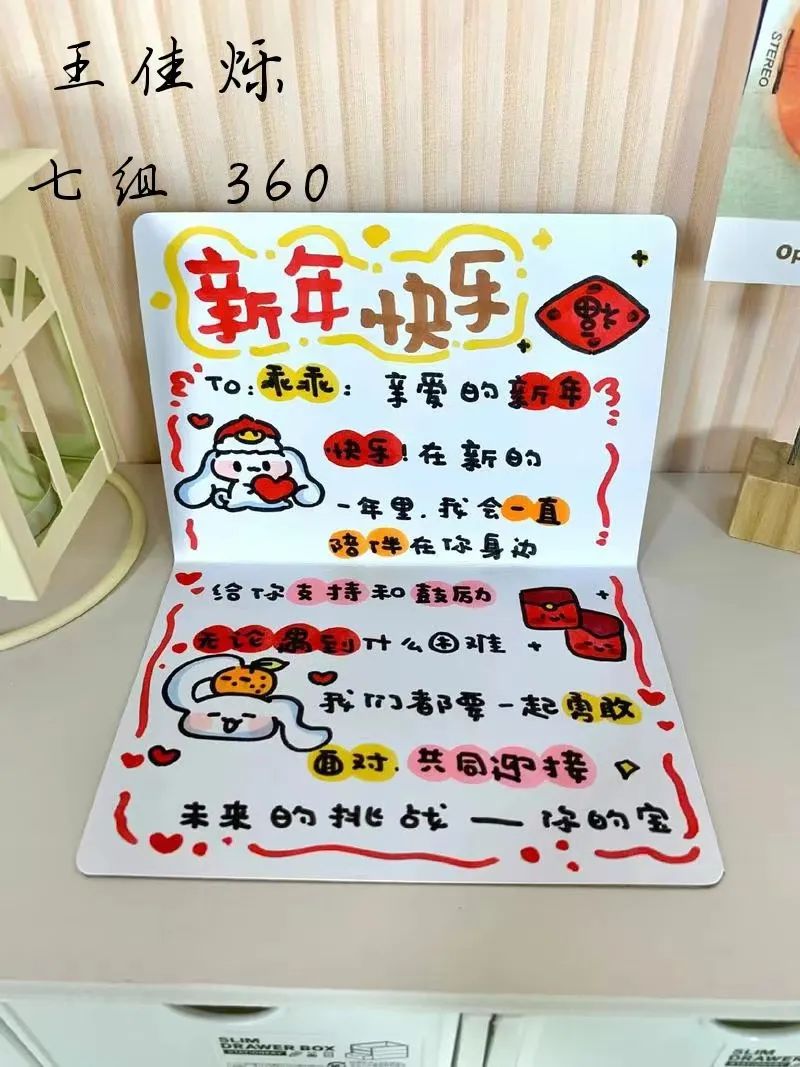 王佳烁
七组 360
STEREO
Op
新年快乐
福
TO:乖乖: 亲爱的新年
快乐!在新的
一年里.我会一直
陪伴在你身边
给你支持和鼓励
无论遇到什么困难
我们都要一起勇敢
面对.共同迎接
未来的挑战——你的宝
SLIM
DRAWER BOX
STATIONERY
SLIM
DRAWER BOX
STATIONERY